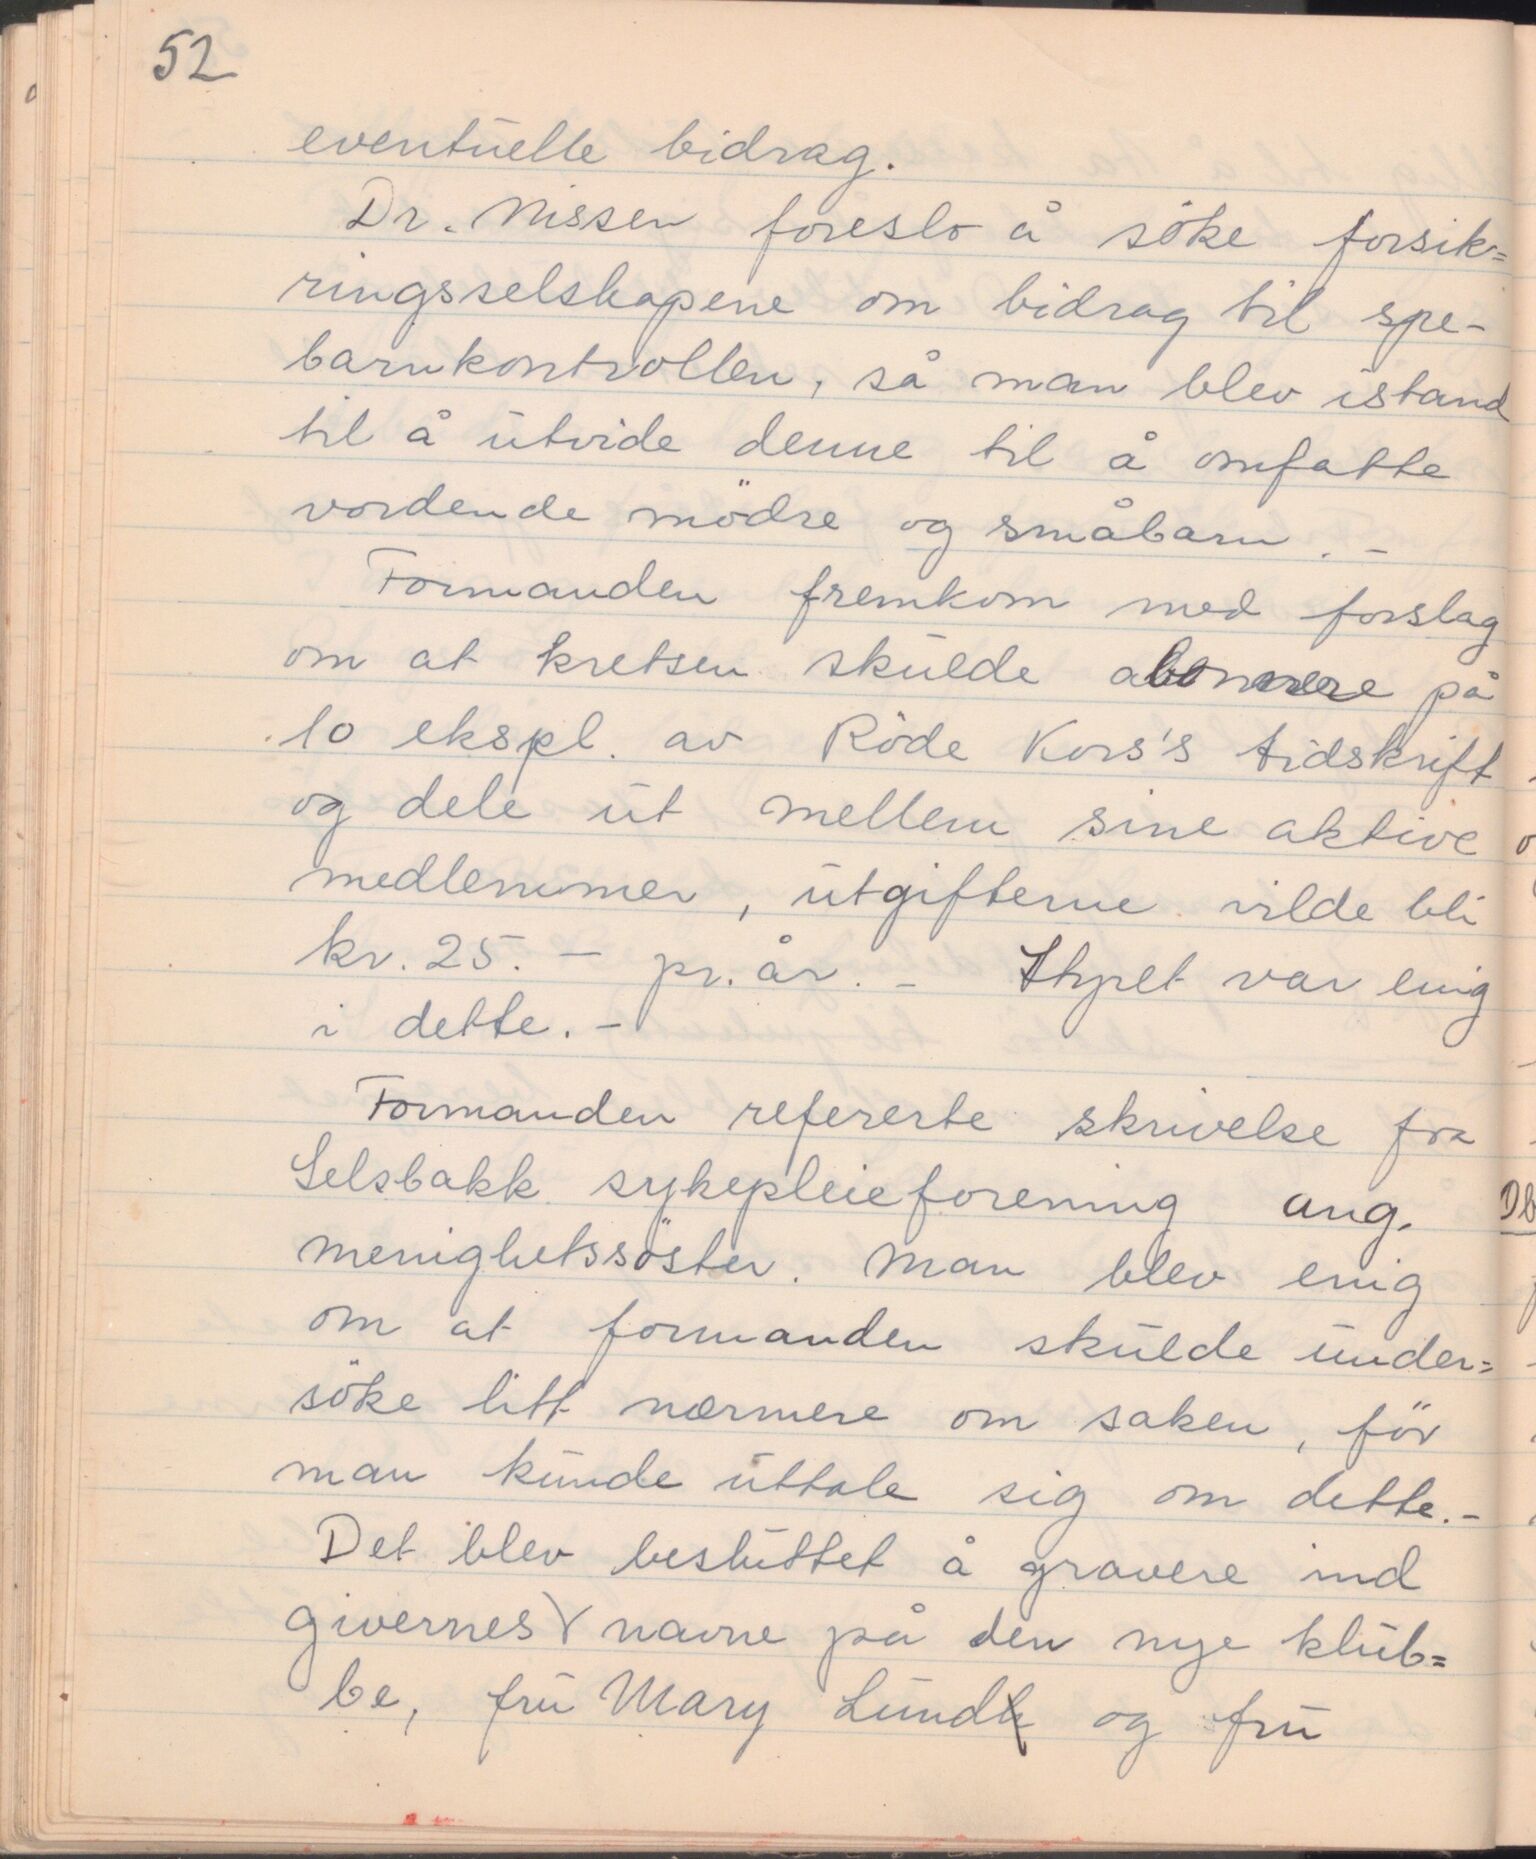 52
eventuelle bidrag.
Dr. Nissen foreslo å söke forsik=
ringsselskapene om bidrag til spe-
barnkontrollen, så man blev istand
til å utvide denne til å omfatte
vordende mödre og småbarn. -
Formanden fremkom med forslag
om at kretsen skulde abonnere på
10 ekspl. av Röde Kors's tidskrift
og dele ut mellem sine aktive
medlemmer, utgifterne vilde bli
kr. 25. - pr. år. - Styret var enig
i dette. -
Formanden refererte skrivelse fra
Selsbakk sykepleieforening ang.
menighetssöster. Man blev enig
om at formanden skulde under=
söke litt nærmere om saken, för
man kunde uttale sig om dette. -
Det blev besluttet å gravere ind
givernes navne på den nye klub=
be, fru Mary Lund og fru